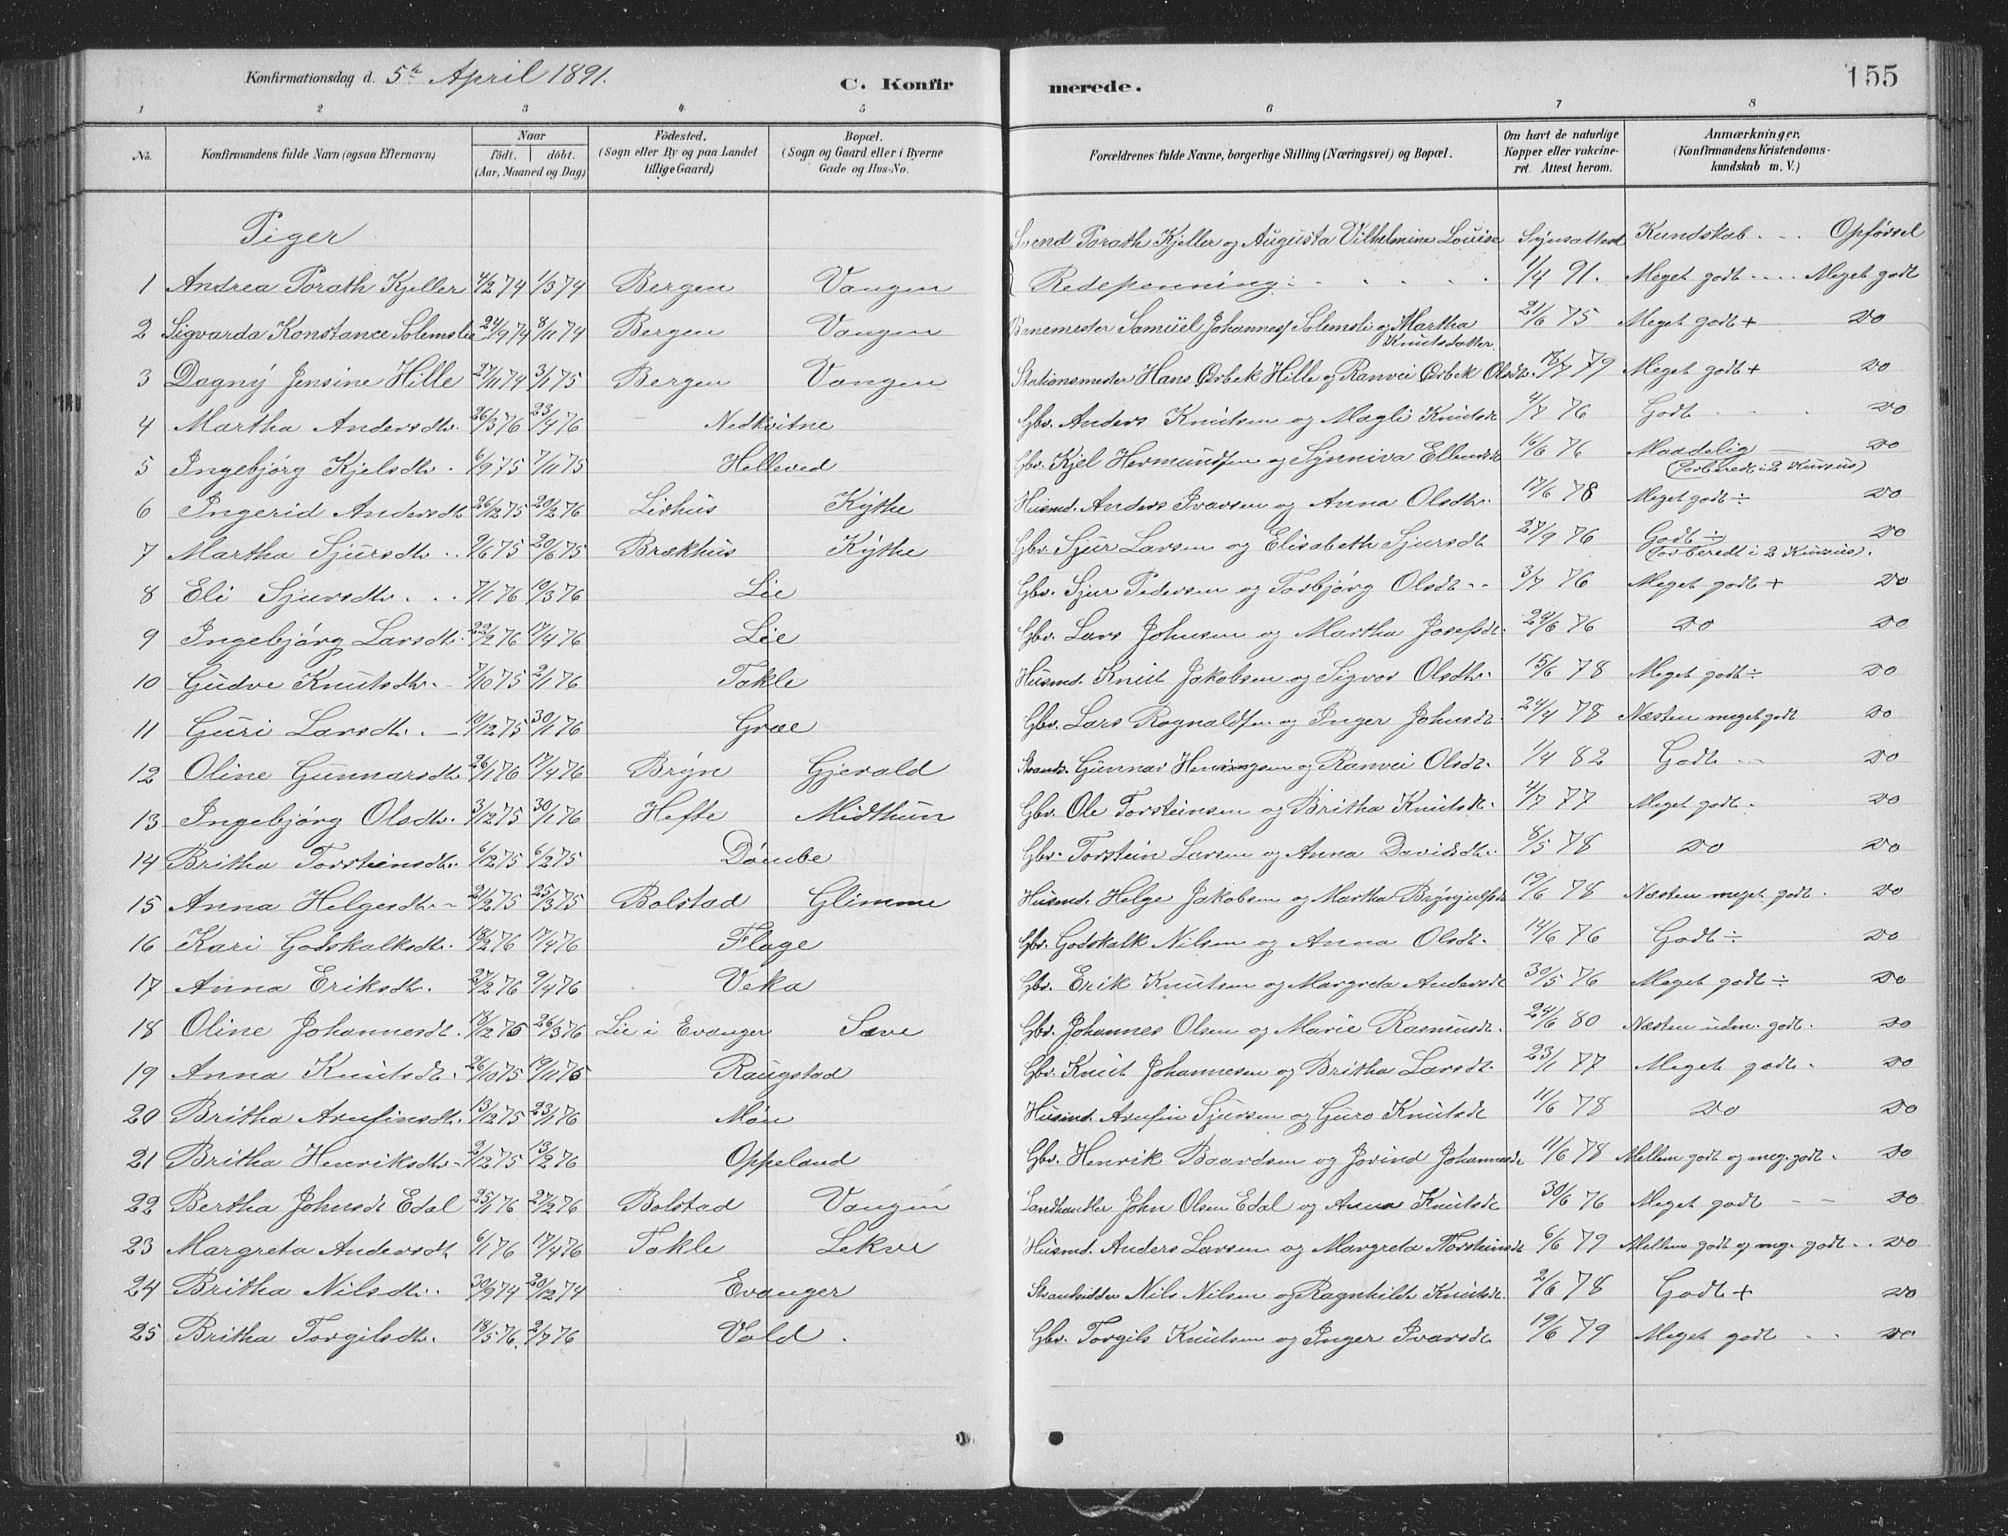 155
Konfirmationsdag d. 5te April 1891.
C. Konfirmerede.
1 2 3 4 5 6 7 8
No. Konfirmandens fulde Navn (ogsaa Efternavn) Naar födt. döbt. (Aar, Maaned og Dag) Födested. (Sogn eller By og paa Landet tillige Gaard) Bopæl. (Sogn og Gaard eller i Byerne Gade og Hus-No. Forældrenes fulde Navne, borgerlige Stilling (Næringsvei) og Bopæl. Om havt de naturlige Kopper eller vakcineret. Attest herom. Anmærkninger. (Konfirmandens Kristendomskundskab m. V.)
Piger Svend Porath Kjeller og Augusta Vilhelmine Louise Synsattest Kundskab - - Opførsel
1 Andrea Porath Kjeller 4/2 74 1/3 74 Bergen Vangen Redepenning 1/4 91. Meget godt - - Meget godt
2 Sigvarda Konstance Solemslie 24/9 74 8/11 74 Bergen Vangen Banemester Samuel Johannes Solemsli og Martha Knutsdatter 21/6 75 Meget godt + do
3 Dagny Jensine Hille 27/11 74 3/1 75 Bergen Vangen Stationsmester Hans Ørbek Hille og Ranvei Ørbek Olsdtr. 79 Meget godt + do
4 Martha Andersdtr. 26/3 76 23/4 76 Nedkvitne Gbr. Anders Knutsen og Magli Knutsdt 4/7 76 Godt do
5 Ingebjørg Kjelsdtr. 6/9 75 7/11 75 Helleved Gbr. Kjel Hermundsen og Synniva Ellensdt 16/6 76 Maadelig (forberedt i 2 Kursus) do
6 Ingerid Andersdt 26/12 75 20/2 76 Lidhus Kythe Husmd. Anders Ivarsen og Anna Olsdtr. 17/6 78 Meget godt ÷ do
7 Martha Sjursdtr. 9/6 75 20/6 75 Brækhus Kythe Gbr. Sjur Larsen og Elisabeth Sjursdt 27/9 76 Godt ÷ (forberedt i 2 Kursus). do
8 Eli Sjursdtr. 7/1 76 19/3 76 Lie Gbr. Sjur Pedersen og Torbjørg Olsdt. 3/7 76 Meget godt + do
9 Ingebjørg Larsdtr. 22/2 76 17/4 76 Lie Gbr. Lars Johnsen og Martha Josefsdt. 24/6 76 do do
10 Gudve Knutsdtr. 7/10 75 2/1 76 Takle Husmd. Knut Jakobsen og Sigvor Olsdtr. 15/6 78 Meget godt ÷ do
11 Guri Larsdtr. 19/12 75 30/1 76 Græe Gbr. Lars Rognaldsen og Inger Johnsdt. 24/4 78 Næsten meget godt do
12 Oline Gunnarsdtr. 26/1 76 17/4 76 Bryn Gjerald Gunnar Henrigsen og Ranvei Olsdt. 1/4 82 Godt do
13 Ingebjørg Olsdtr. 3/12 75 30/1 76 Hefte Midthun Gbr. Ole Torsteinsen og Britha Knutsdt. 4/7 77 Meget godt. do
14 Britha Torsteinsdtr. 6/12 75 6/2 75 Dømbe Gbr. Torstein Larsen og Anna Davidsdt. 8/5 78 do do
15 Anna Helgesdtr. 21/2 75 25/3 75 Bolstad Glimme Husmd. Helge Jakobsen og Martha Brynjulfsdt 19/6 78 Næsten meget godt. do
16 Kari Godskalksdtr. 18/2 76 17/4 76 Flage Gbr. Godskalk Nilsen og Anna Olsdt. 14/6 76 Godt ÷ do
17 Anna Eriksdtr. 27/2 76 9/4 76 Veka Gbr. Erik Knutsen og Margreta Andersdt 30/5 76 Meget godt ÷ do
18 Oline Johannesdt. 18/12 75 26/3 76 Lie i Evanger Sæve Gbr. Johannes Olsen og Marie Rasmusdt. 24/6 80 Næsten udm. godt. do
19 Anna Knutsdt. 26/10 75 19/11 75 Raugstad Gbr. Knut Johannesen og Britha Larsdt. 23/1 77 Meget godt. do
20 Britha Arnfinsdt. 13/12 75 23/1 76 Møn Husmd. Arnfin Sjursen og Guro Knutsdt 11/6 78 do do
21 Britha Henriksdtr. 2/12 75 13/2 76 Oppeland Gbr. Henrik Baardsen og Jorind Johannesdt 11/6 78 Mellem godt og meg. godt. do
22 Bertha Johnsdt Edal 25/1 76 27/2 76 Bolstad Vangen Landhandler John Olsen Edal og Anna Knutsdt 30/6 76 Meget godt - - do
23 Margreta Andersdt. 6/1 76 17/4 76 Takle Lekve Husmd. Anders Larsen og Margreta Torsteinsdt 6/6 79 Mellem godt og meg. godt. do
24 Britha Nilsdtr. 30/9 74 20/12 74 Evanger Strandsidder Nils Nilsen og Ragnhilde Knutsdt. 2/6 78 Godt + do
25 Britha Torgilsdtr. 18/5 76. 2/7 76 Vold. Gbr. Torgils Knutsen og Inger Ivarsdt. 19/6 79 Meget godt do